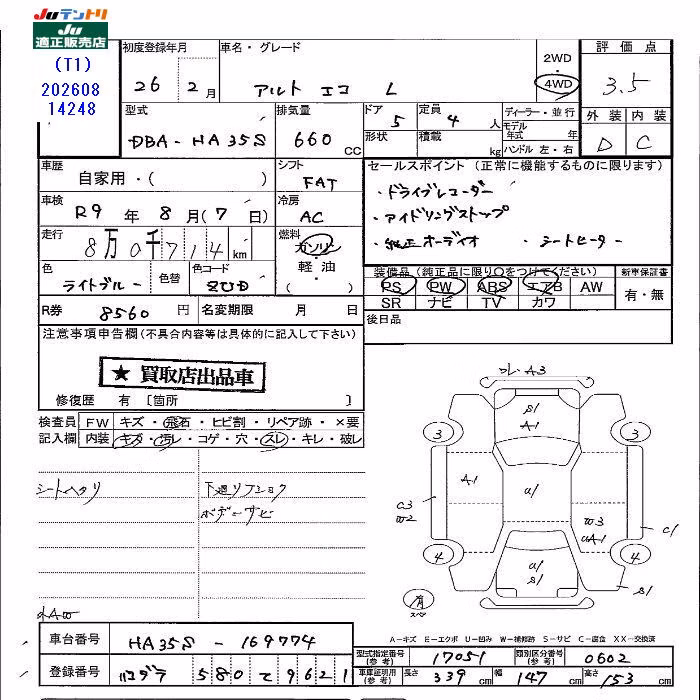 JUテントリ
JU
適正販売店
(T1)
202608
14248
初度登録年月
26 2月
車名・グレード
アルト エコ L
2WD
4WD
評価点
3.5
型式
DBA-HA35S
排気量
660 cc
ドア
5
形状
定員
4 人
積載
kg
ディーラー・並行
モデル年式 年
ハンドル 左・右
外装 内装
D C
車歴
自家用・( )
シフト
FAT
セールスポイント (正常に機能するものに限ります)
・ドライブレコーダー
・アイドリングストップ
・純正オーディオ ・シートヒーター
車検
R9 年 8 月(7 日)
冷房
AC
走行
8万0千714km
燃料
ガソリン
軽・油
( )
色
ライトブルー
色替
色コード
装備品(純正品に限り○をつけてください)
PS PW ABS エアB AW
SR ナビ TV カワ
新車保証書
有・無
R券 8560 円
名変期限 月 日
後日品
注意事項申告欄(不具合内容等は具体的に記入して下さい)
★ 買取店出品車
修復歴 有 〔箇所 〕
検査員記入欄
FW キズ・飛石・ヒビ割・リペア跡・×要
内装 キズ・汚レ・コゲ・穴・スレ・キレ・破レ
シートヘタリ
下廻りフショク
ボデーサビ
A3
S/
A-1
3
3
A-1
U/
C3
W2
W3
UA1
C/
4
4
U/
S/
S/
有
スペア
A-キズ E-エクボ U-凹み W-補修跡 S-サビ C-腐食 XX-交換済
車台番号
HA35S-169774
登録番号
580 て 9621
型式指定番号(参考)
17051
類別区分番号(参考)
0602
車庫証明用(参考)
長さ 339 cm
幅 147 cm
高さ 153 cm